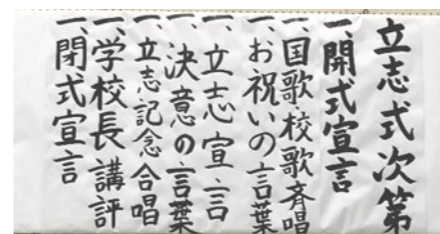 立志式次第
一、開式宣言
一、国歌・校歌斉唱
一、お祝いの言葉
一、立志宣言
一、決意の言葉
一、立志記念合唱
一、学校長講評
一、閉式宣言